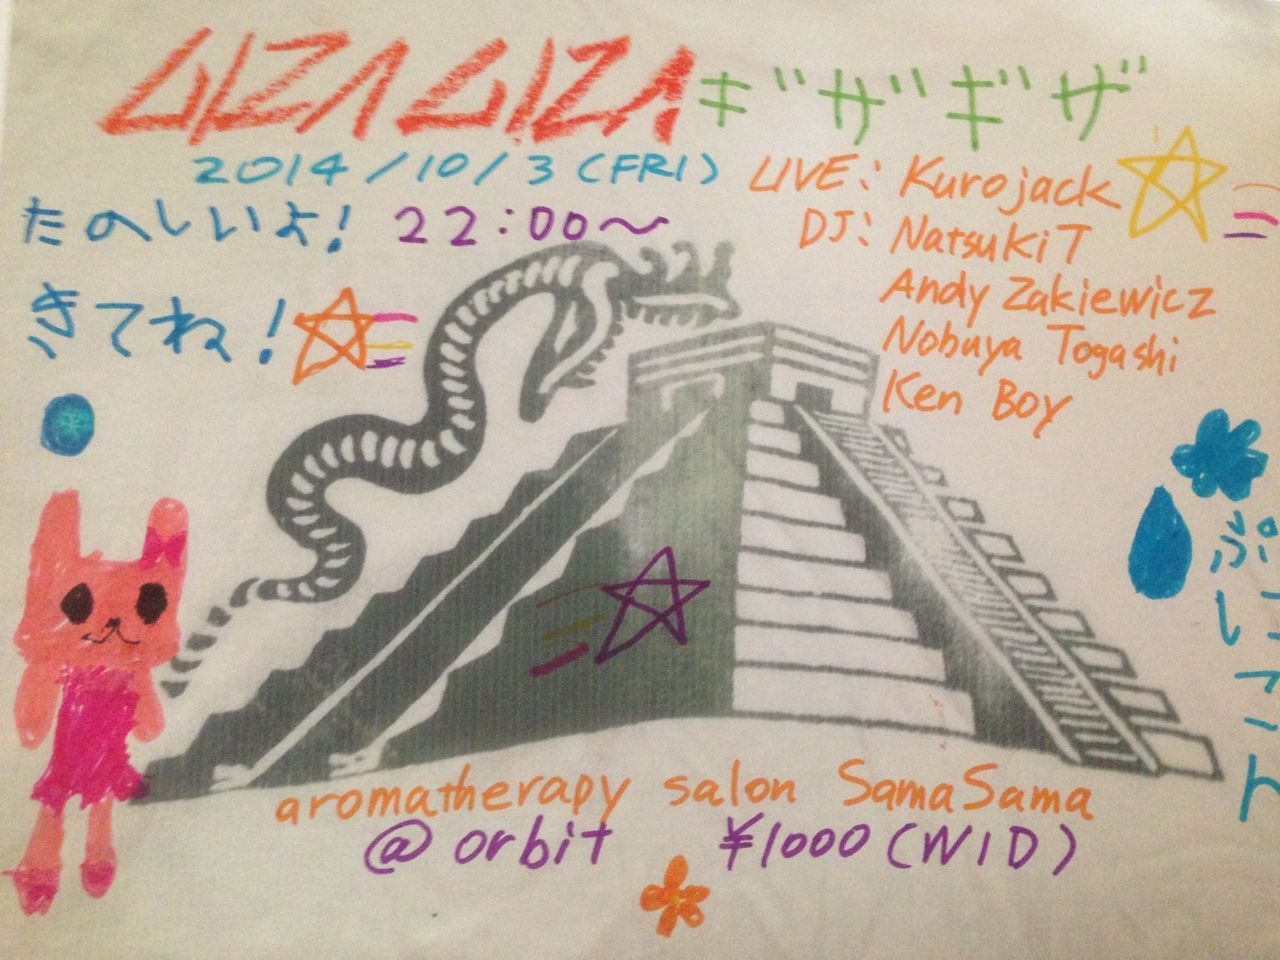 GIZA GIZA ギザギザ
2014/10/3(FRI)
たのしいよ! 22:00〜
きてね!
LIVE: Kurojack
DJ: Natsuki T
Andy Zakiewicz
Nobuya Togashi
Ken Boy
aromatherapy salon SamaSama
@ orbit ¥1000 (W1D)